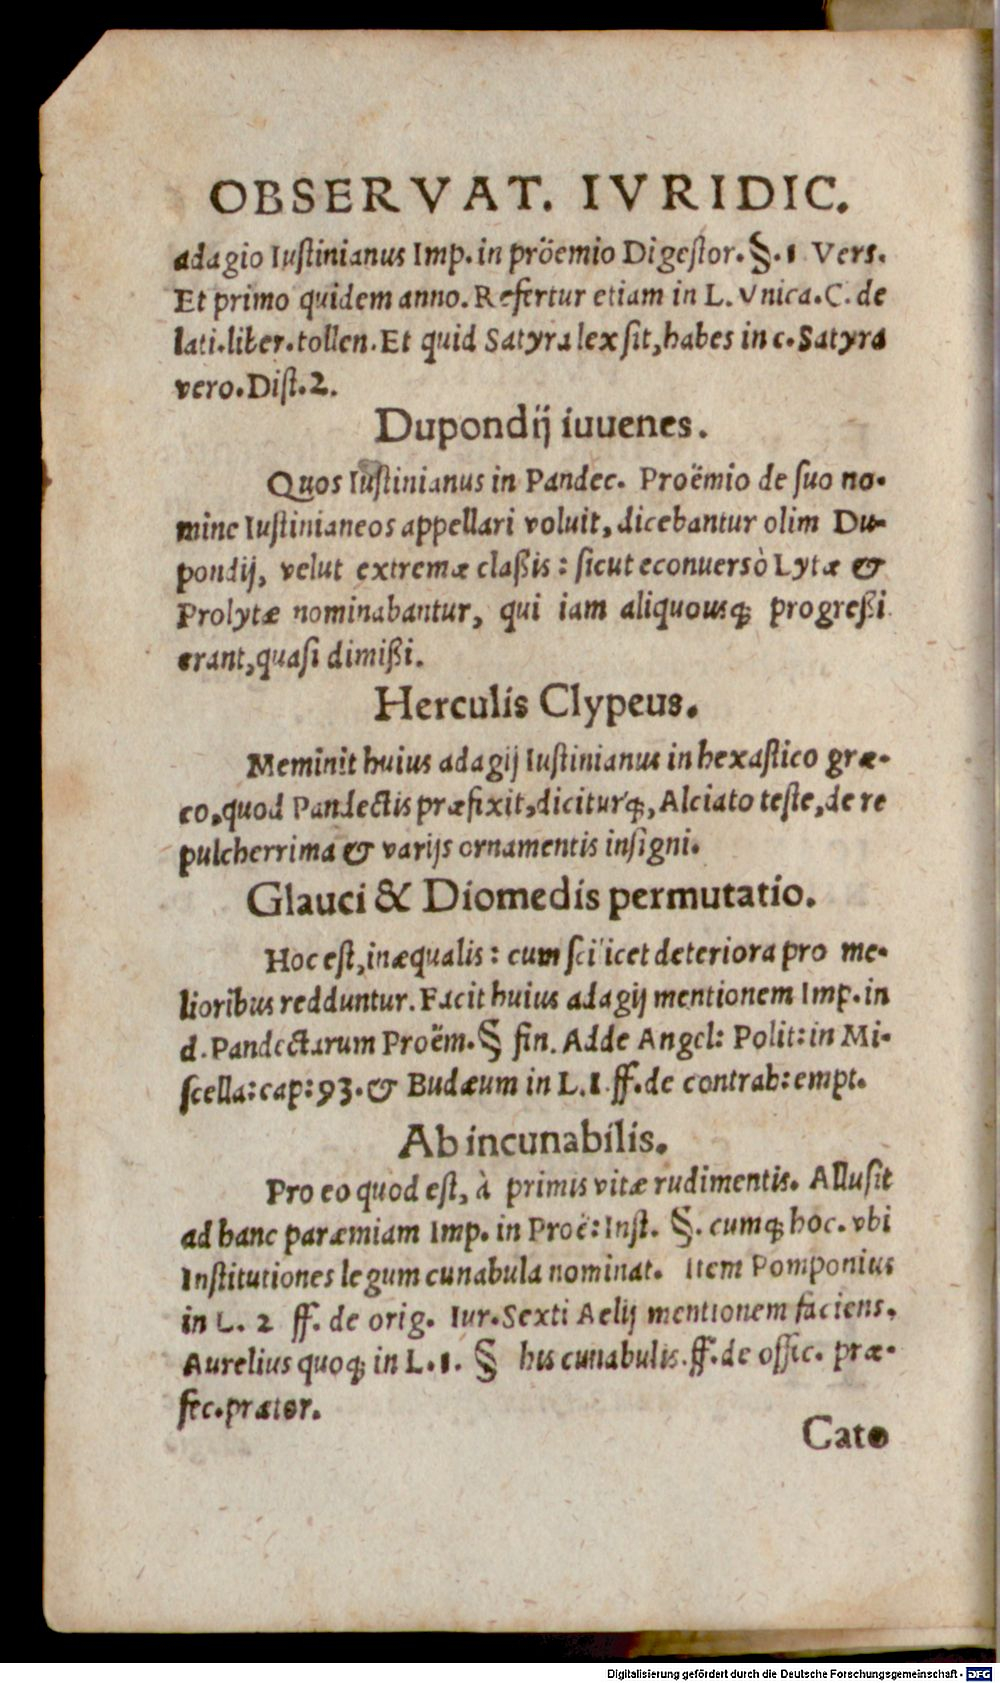 OBSERVAT. IVRIDIC.
adagio Iuſtinianus Imp. in pröemio Digeſtor. §. 1 Vers.
Et primo quidem anno. Refertur etiam in L. Vnica. C. de
lati. liber. tollen. Et quid Satyra lex ſit, habes in c. Satyra
vero. Diſt. 2.
Dupondij iuuenes.
Quos Iuſtinianus in Pandec. Proëmio de ſuo no-
mine Iuſtinianeos appellari voluit, dicebantur olim Du-
pondij, velut extremæ claßis: ſicut econuersò Lytæ &
Prolytæ nominabantur, qui iam aliquousq; progreßi
erant, quaſi dimißi.
Herculis Clypeus.
Meminit huius adagij Iuſtinianus in hexaſtico græ-
co, quod Pandectis præfixit, diciturq;, Alciato teſte, de re
pulcherrima & varijs ornamentis inſigni.
Glauci & Diomedis permutatio.
Hoc eſt, inæqualis: cum ſcilicet deteriora pro me-
lioribus redduntur. Facit huius adagij mentionem Imp. in
d. Pandectarum Proëm. § fin. Adde Angel: Polit: in Mi-
ſcella: cap: 93. & Budæum in L. 1 ff. de contrah: empt.
Ab incunabilis.
Pro eo quod eſt, à primis vitæ rudimentis. Alluſit
ad hanc paræmiam Imp. in Proë: Inſt. §. cumq; hoc. vbi
Inſtitutiones legum cunabula nominat. Item Pomponius
in L. 2 ff. de orig. Iur. Sexti Aelij mentionem faciens.
Aurelius quoq; in L. 1. § his cunabulis. ff. de offic. præ-
fec. prætor.
Cato
Digitalisierung gefördert durch die Deutsche Forschungsgemeinschaft - DFG